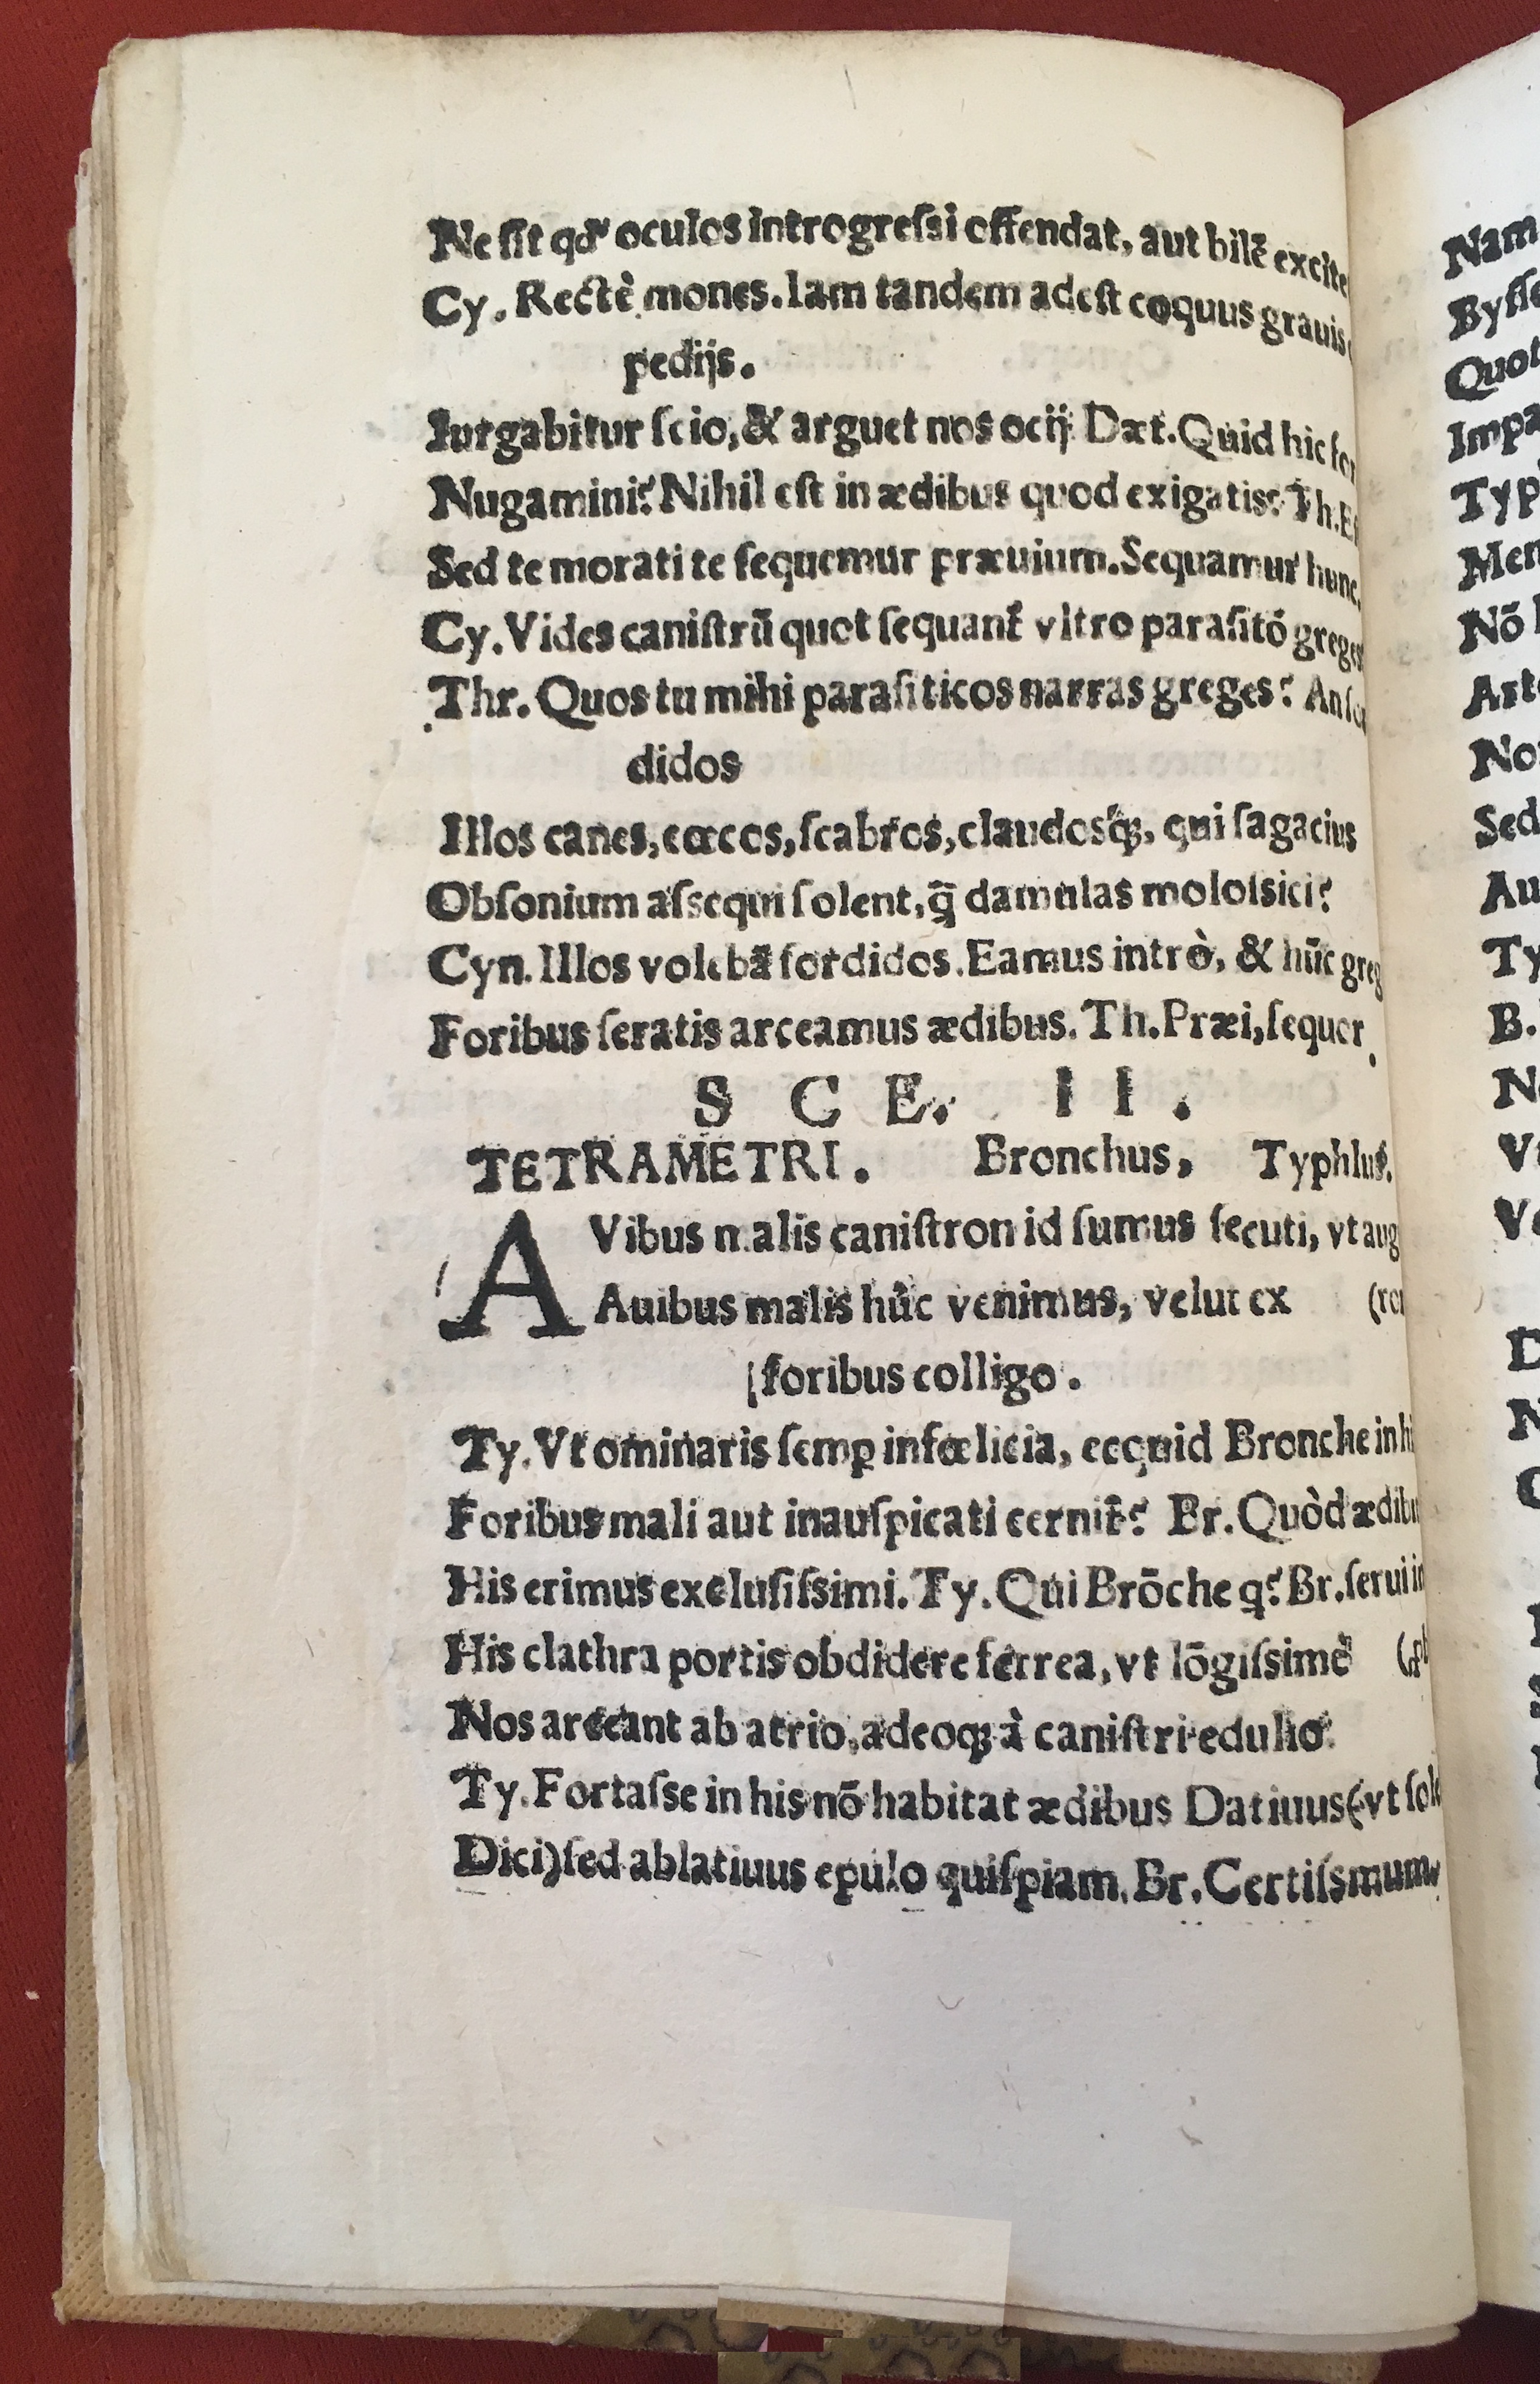 Ne ſit qd' oculos introgreſsi offendat, aut bilē excite
Cy. Rectè mones. Iam tandem adeſt coquus grauis
pedijs.
Iurgabitur ſcio, & arguet nos ocij. Dæt. Quid hic
Nugamini? Nihil eſt in ædibus quod exigatis? Th.
Sed te morati te ſequemur præuium. Sequamur hunc.
Cy. Vides caniſtrū quot ſequant̃ vltro paraſitō greges
Thr. Quos tu mihi paraſiticos narras greges? An
didos
Illos canes, cœcos, ſcabros, claudosq;, qui ſagacius
Obſonium aſsequi ſolent, q̄ damulas moloſsici?
Cyn. Illos volebā ſordidos. Eamus intrò, & hūc greg
Foribus ſeratis arceamus ædibus. Th. Præi, ſequor.
SCE. II.
TETRAMETRI. Bronchus, Typhlus.
AVibus malis caniſtron id ſumus ſecuti, vt aug
Auibus malis hūc venimus, velut ex (
foribus colligo.
Ty. Vt ominaris ſemꝑ infœlicia, ecquid Bronche in
Foribus mali aut inauſpicati cernit̃? Br. Quòd ædibu
His erimus excluſiſsimi. Ty. Qui Brōche q? Br. ſerui
His clathra portis obdidere ferrea, vt lōgiſsimè (
Nos arceant ab atrio, adeoq; à caniſtri edulio.
Ty. Fortaſse in his nō habitat ædibus Datiuus (vt
Dici) ſed ablatiuus epulo quiſpiam. Br. Certiſsmum
Nam
Quot
Impa
Typ
Men
Nō
Art
No
Sed
Au
Ty
B.
N